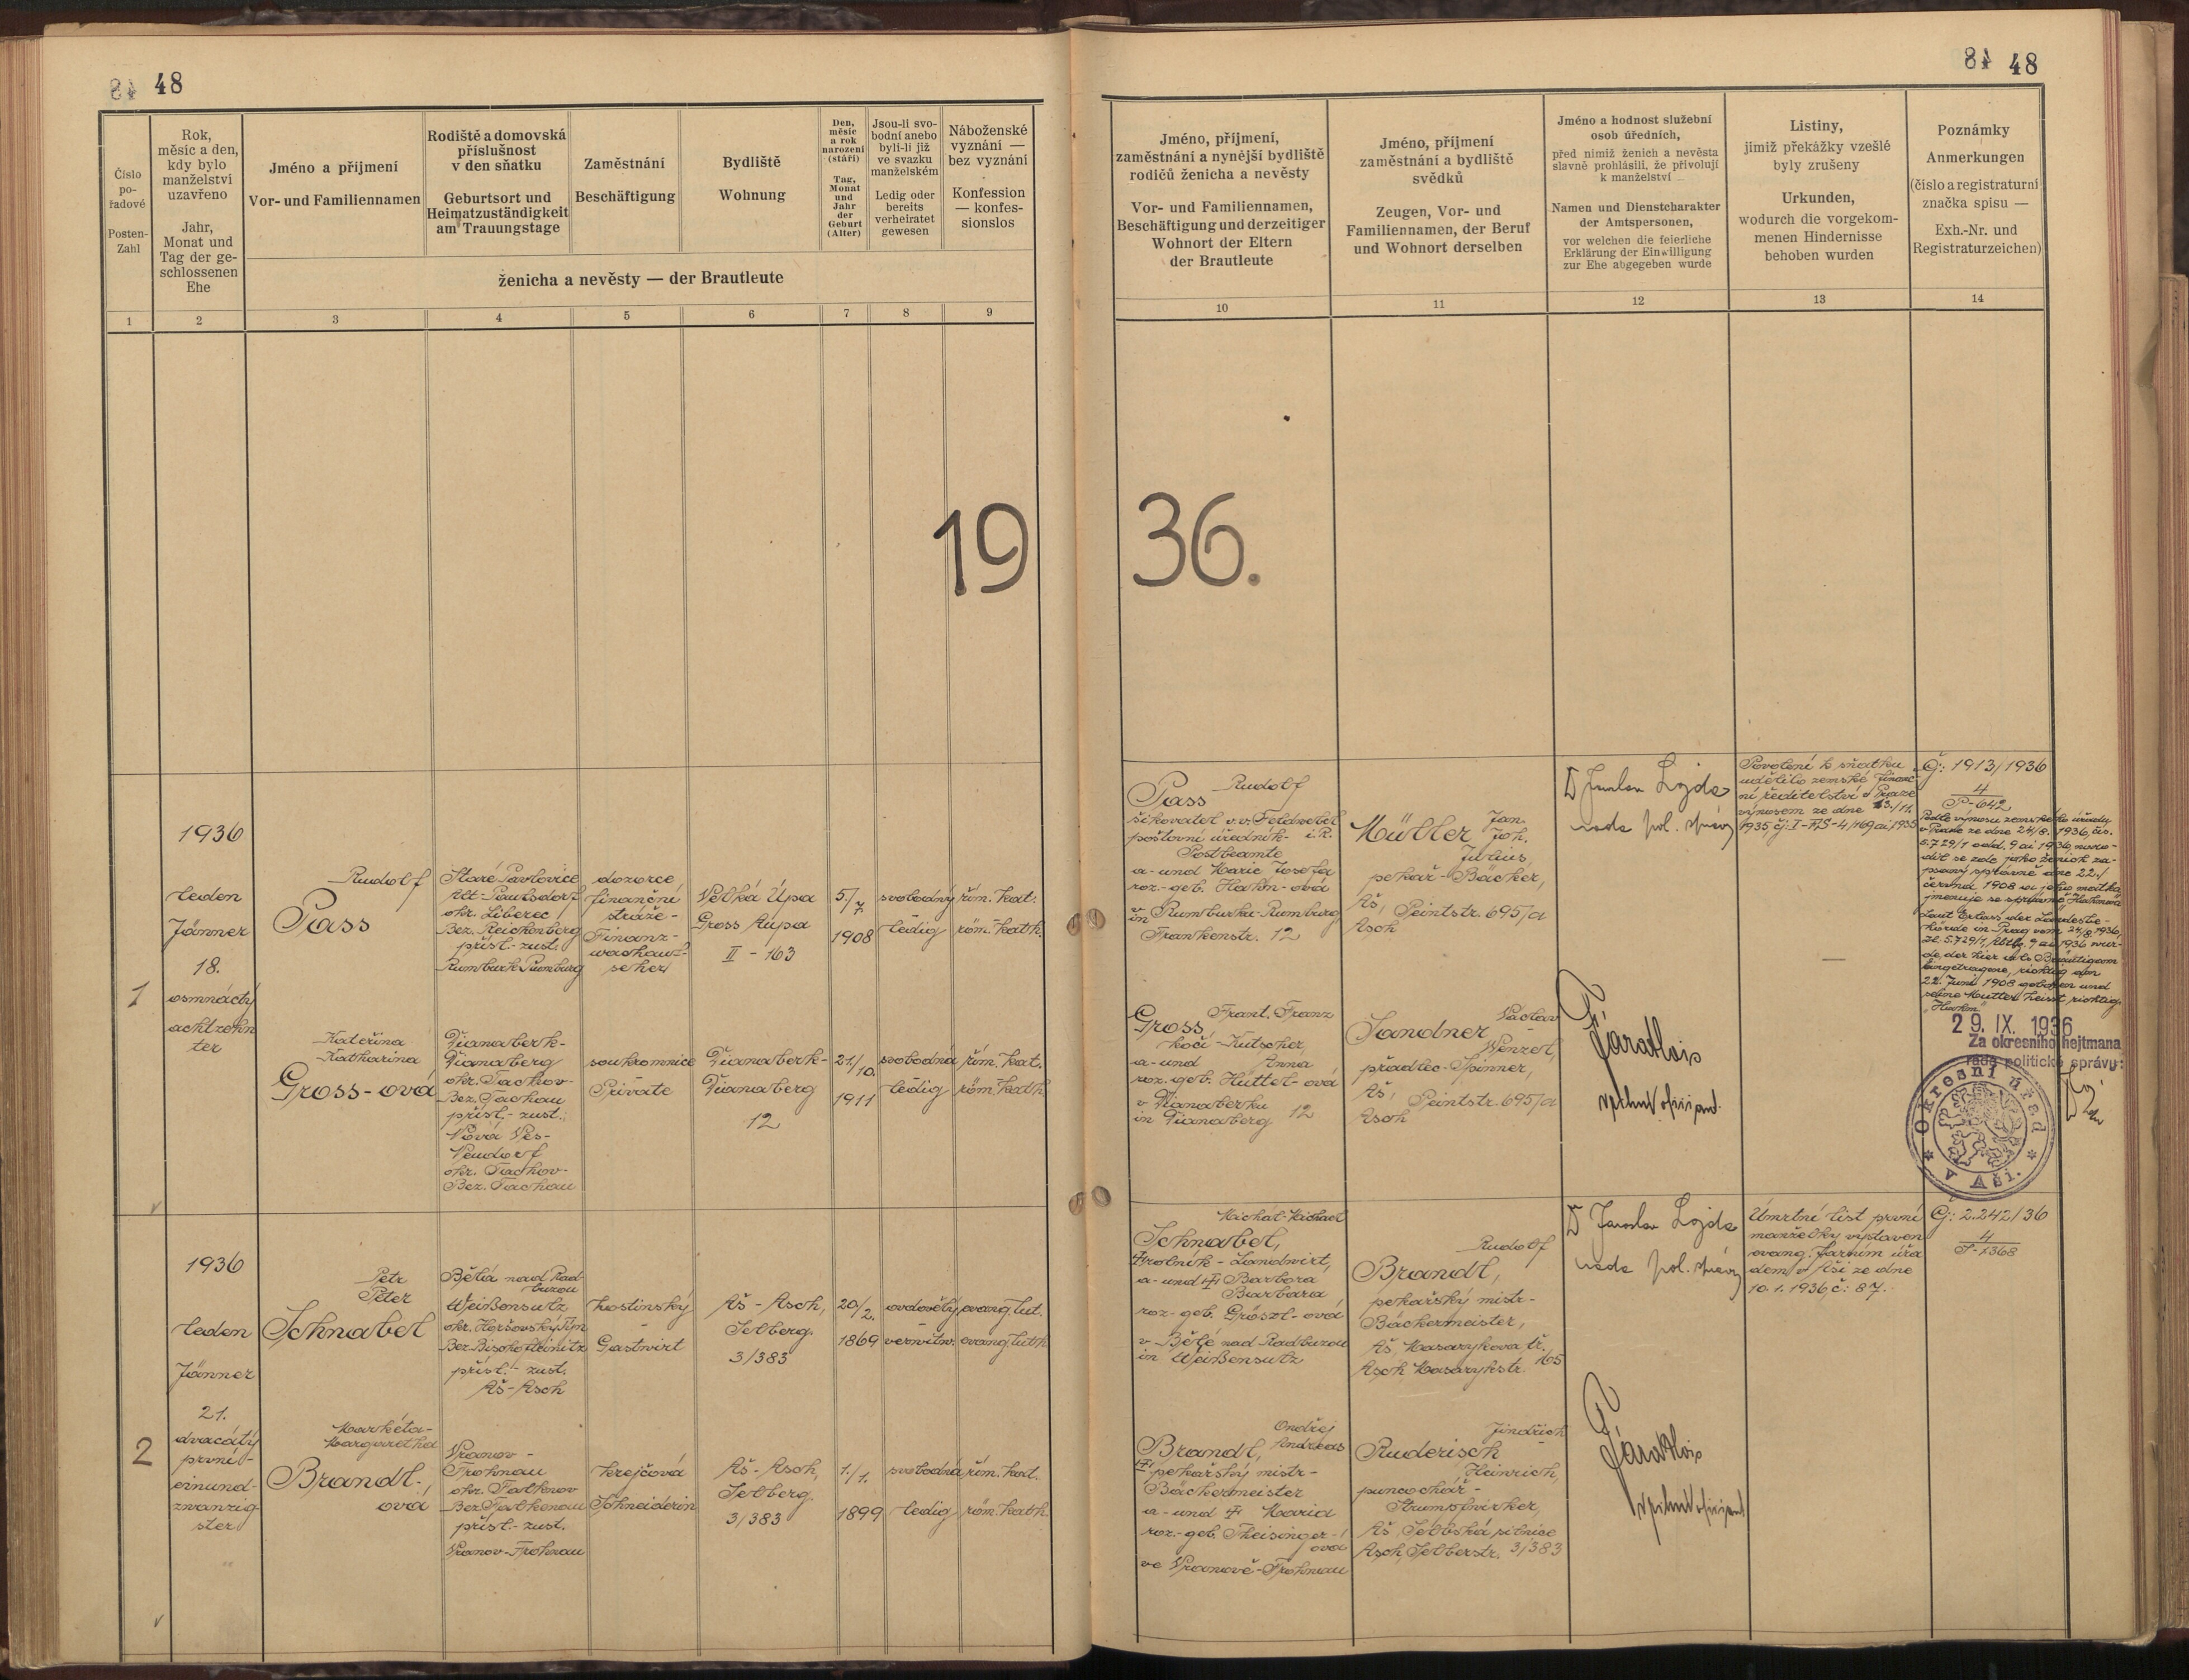 48
Číslo
po-
řadové
Posten-
Zahl
Rok,
měsíc a den,
kdy bylo
manželství
uzavřeno
Jahr,
Monat und
Tag der ge-
schlossenen
Ehe
Jméno a přijmení
Vor- und Familiennamen
Rodiště a domovská
příslušnost
v den sňatku
Geburtsort und
Heimatzuständigkeit
am Trauungstage
Zaměstnání
Beschäftigung
Bydliště
Wohnung
Den,
měsíc
a rok
narození
(stáří)
Tag,
Monat
und
Jahr
der
Geburt
(Alter)
Jsou-li svo-
bodní anebo
byli-li již
ve svazku
manželském
Ledig oder
bereits
verheiratet
gewesen
Náboženské
vyznání —
bez vyznání
Konfession
— konfes-
sionslos
ženicha a nevěsty — der Brautleute
1 2 3 4 5 6 7 8 9
19
1
1936
leden
Jänner
18.
osmnáctý
achtzehn
ter
Rudolf
Pass
Staré Pavlovice
Alt-Paulsdorf
okr. Liberec
Bez. Reichenberg
přísl.-zust.
Rumburk-Rumburg
dozorce
finanční
stráže-
Finanz-
wachauf-
seher
Velká Úpa
Gross Aupa
II - 163
5./
7.
1908
svobodný
ledig
řím. kat.
röm. kath.
Kateřina
Katharina
Gross-ová
Dianaberk-
Dianaberg
okr. Tachov-
Bez. Tachau
přísl.-zust.:
Nová Ves-
Neudorf
okr. Tachov-
Bez. Tachau
soukromnice
Private
Dianaberk-
Dianaberg
12
21./
10.
1911
svobodná
ledig
řím. kat.
röm. kath.
2
1936
leden
Jänner
21.
dvacátý
první-
einund-
zwanzig-
ster
Petr
Peter
Schnabel
Bělá nad Rad-
buzou
Weißensulz
okr. Horšovský Týn
Bez. Bischofteinitz
přísl.-zust.
Aš-Asch
hostinský
-
Gastwirt
Aš-Asch,
Selberg.
3/383
20/
2.
1869
ovdovělý
verwitw.
evang. lut.
evang. luth
Markéta-
Margaretha
Brandl-
ová
Vranov-
Frohnau
okr. Falknov
Bez. Falkenau
přísl.-zust.
Vranov-Frohnau
krejčová
Schneiderin
Aš-Asch,
Selberg
3/383
1./
1.
1899
svobodná
ledig
řím. kat.
röm. kath.
48
Jméno, přijmení,
zaměstnání a nynější bydliště
rodičů ženicha a nevěsty
Vor- und Familiennamen,
Beschäftigung und derzeitiger
Wohnort der Eltern
der Brautleute
Jméno, přijmení
zaměstnání a bydliště
svědků
Zeugen, Vor- und
Familiennamen, der Beruf
und Wohnort derselben
Jméno a hodnost služební
osob úředních,
před nimiž ženich a nevěsta
slavně prohlásili, že přivolují
k manželství
Namen und Dienstcharakter
der Amtspersonen,
vor welchen die feierliche
Erklärung der Einwilligung
zur Ehe abgegeben wurde
Listiny,
jimiž překážky vzešlé
byly zrušeny
Urkunden,
wodurch die vorgekom-
menen Hindernisse
behoben wurden
Poznámky
Anmerkungen
(číslo a registraturní
značka spisu —
Exh.-Nr. und
Registraturzeichen)
10 11 12 13 14
36.
Rudolf
Pass
šikovatel v. v. Feldwebel
poštovní úředník- i. R.
Postbeamte
a-und Marie Josefa
roz.-geb. Hahn-ová
v
in Rumburku-Rumburg
Frankenstr. 12
Jan.
Müller Joh.
Julius,
pekař-Bäcker,
Aš, Peintstr. 695/a
Asch
Dr Jaroslav Lojda
rada pol. správy
Povolení k sňatku
udělilo zemské finanč-
ní ředitelství v Praze
výnosem ze dne 23./11.
1935 čj: I-FJS-4/169 ai 1935
Čj: 1913/1936
4
P-642
Podle výnosu zemského úřadu
v Praze ze dne 24/8. 1936, čís.
5.729/1 odd. 9 ai 1936, naro-
dil se zde jako ženich za-
psaný správně dne 22./
června 1908 a jeho matka
jmenuje se správně Hahnová
Laut Erlass der Landesbe-
hörde in Prag vom 24/8. 1936,
Zl. 5.729/1, Abtlg. 9 ai 1936 wur-
de, der hier als Bräutigam
eingetragene, richtig am
22. Juni 1908 geboren und
seine Mutter heisst richtig
„Hahn"
29. IX. 1936
Za okresního hejtmana
rada politické správy:
Okresní úřad
v Aši.
Frant. Franz
Gross
kočí-Kutscher
a-und Anna
roz. geb. Hüttel-ová
v Dianaberku
in Dianaberg 12
Václav
Sandner Wenzel,
přadlec-Spinner,
Aš, Peintstr. 695/a
Asch
Michal-Michael
Schnabel,
rolník-Landwirt,
a-und Barbora
Barbara
roz-geb. Gröszl-ová
v Bělé nad Radbuzou
in Weißensulz
Rudolf
Brandl,
pekařský mistr-
Bäckermeister,
Aš, Masarykova tř.
Asch, Masarykstr. 165
Dr Jaroslav Lojda
rada pol. správy
Úmrtní list první
manželky vystaven
evang. farním úřa-
dem v Aši ze dne
10. 1. 1936, č: 87.
Čj: 2.242/36
4
P-1368
Ondřej
Brandl, Andreas
pekařský mistr-
Bäckermeister
a-und Maria
roz-geb. Theisinger-
ová
ve Vranově-Frohnau
Jindřich
Ruderisch -
Heinrich,
punčochář-
Strumpfwirker,
Aš, Selbská silnice
Asch, Selberstr. 3/383